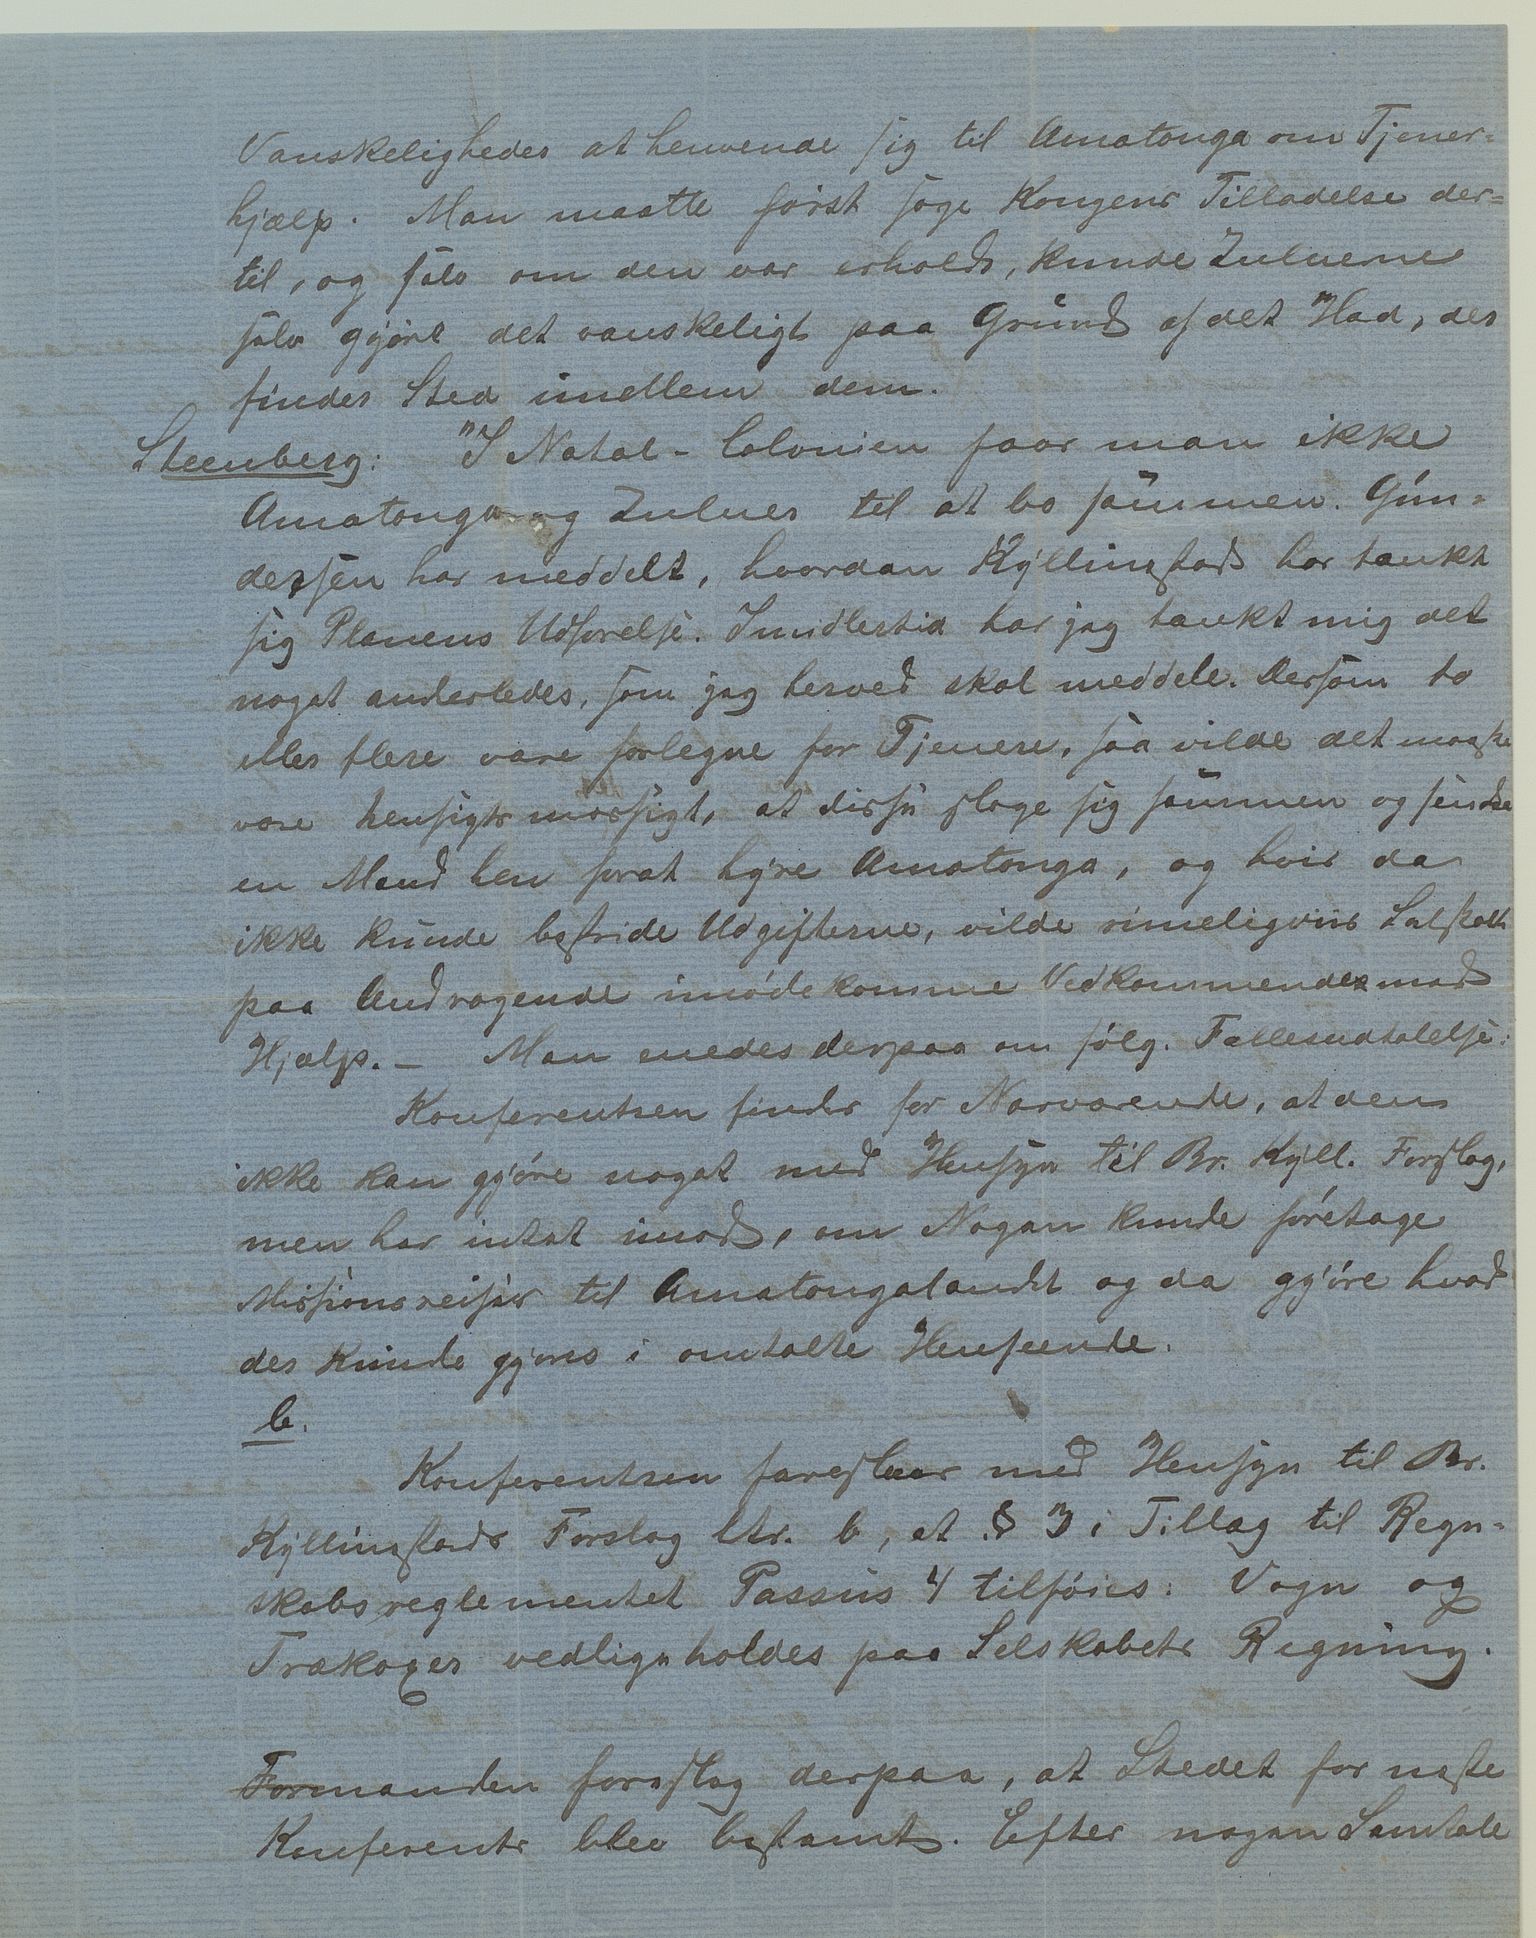 Vanskeligheder at henvende sig til Amatonga om Tjener-
hjælp. Man maatte først søge Kongens Tilladelse der-
til, og selv om den var erholdt, kunde Zuluerne
selv gjøre det vanskeligt paa Grund af det Had, der
finder Sted imellem dem.
Steenberg: "I Natal-Colonien faar man ikke
Amatonga og Zuluer til at bo sammen. Gun-
dersen har meddelt, hvordan Kyllingstad har tænkt
sig Planens Udførelse. Imidlertid har jeg tænkt mig det
noget anderledes, som jeg herved skal meddele. Dersom to
eller flere vare forlegne for Tjenere, saa vilde det maaske
være hensigtsmæssigt, at disse sloge sig sammen og sendte
en Mand hen forat hyre Amatonga, og hvis da
ikke kunde bestride Udgifterne, vilde rimeligviis Selskabet
paa Andragende imødekomme Vedkommende med
Hjælp. – Man enedes derpaa om følg. Fællesudtalelse:
Konferentsen finder for Nærværende, at den
ikke kan gjøre noget med Hensyn til Br. Kyll. Forslag,
men har intet imod, om Nogen kunde foretage
Missionsreiser til Amatongalandet og da gjøre hvad
der kunde gjøres i omtalte Henseende.
b.
Konferentsen foreslaar med Hensyn til Br.
Kyllingstads Forslag ltr. b, at § 3 i Tillæg til Regn-
skabsreglementet Passus 4 tilføies: Vogn og
Trækoxer vedligeholdes paa Selskabets Regning.
Formanden foreslog derpaa, at Stedet for næste
Konferents blev bestemt. Efter nogen Samtale